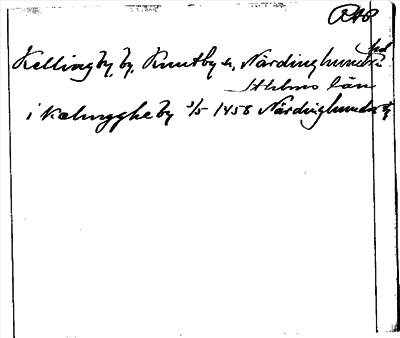 RAp
Kellingby by, Knutby sn, Närdinghundra hd
Sthlms län
i Kælinggheby 3/5 1458 Närdinghundr